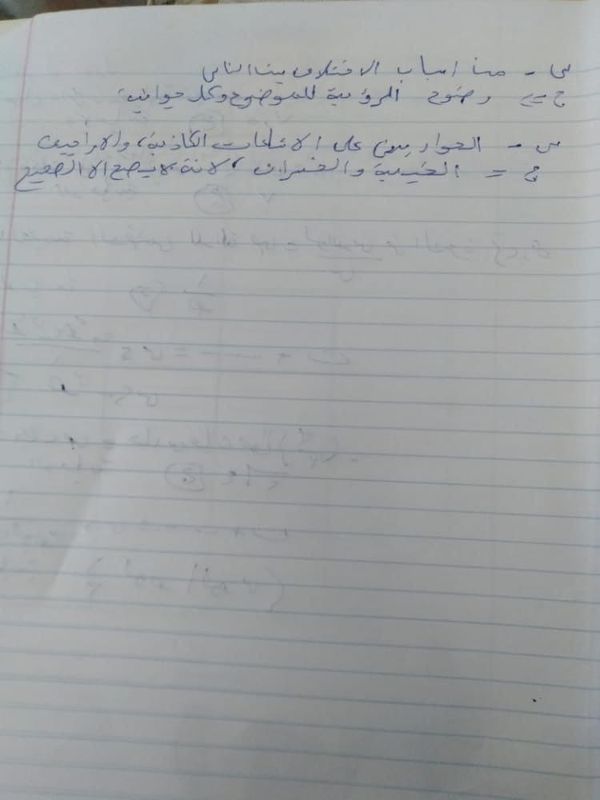 س - من اسباب الاختلاف بين الناس
ج = وضوح الرؤية للموضوع وكل جوانبه
س - الحوار مبني على الاشاعات الكاذبة، والاراجيف
ج = الخيبة والخسران، لانة لا يصح الا الصحيح